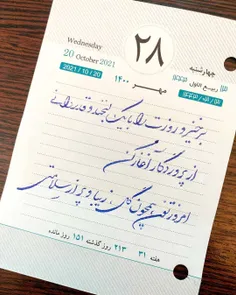 Wednesday
20 October 2021
2021 / 10 / 20
۲۸
مهر ۱۴۰۰
چهارشنبه
ربیع الاول
برخیز و روزت را با یک لبخند و قدردانی
از پروردگار آغاز کن
امروزتون همچون گل، زیبا و پر از سلامتی
هفته ۳۱ ۲۱۳ روز گذشته ۱۵۱ روز مانده